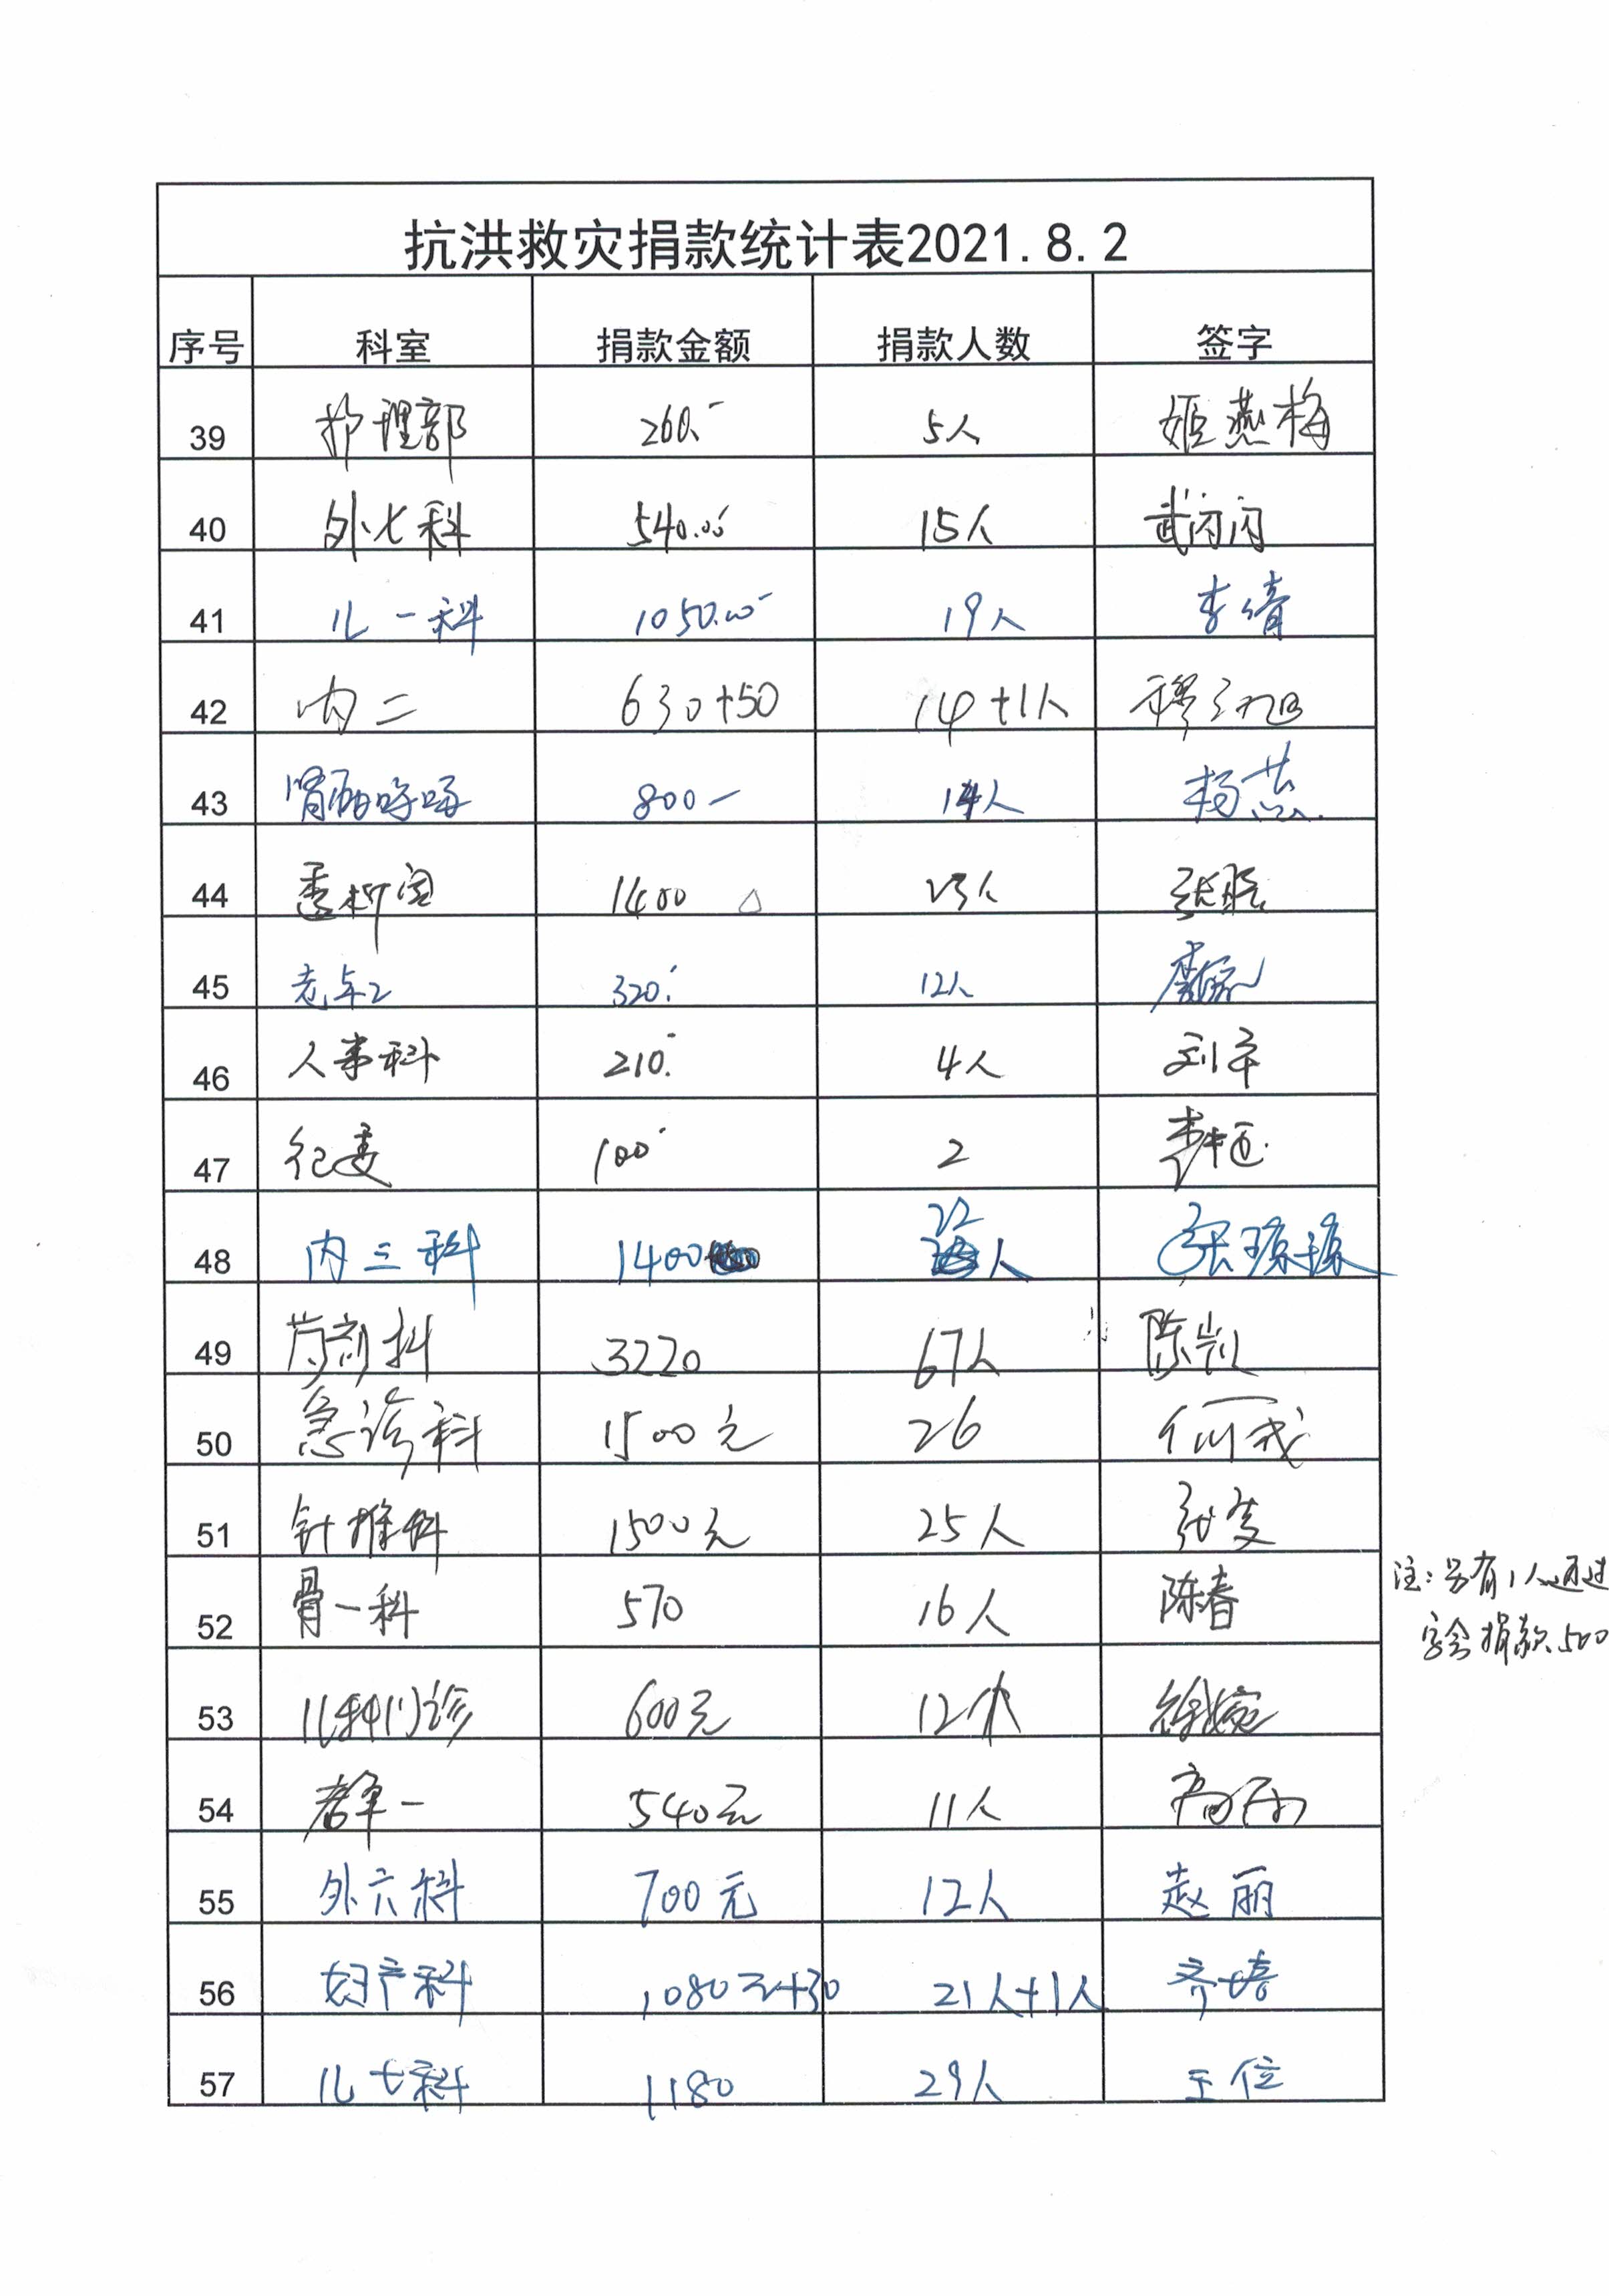 抗洪救灾捐款统计表2021.8.2
序号 科室 捐款金额 捐款人数 签字
39 护理部 260.- 5人 姬燕梅
40 外七科 540.00 15人 武闪闪
41 儿一科 1050.00 19人 李倩
42 内二 630+50 14+1人
43 肾病 800- 14人 杨
44 透析室 1400 23人 张
45 老年2 320.- 12人
46 人事科 210.- 4人 刘
47 纪委 100- 2 李
48 内三科 1400 22人 张琼琼
49 药剂科 3220 67人 陈凯
50 急诊科 1500元 26 何
51 针推科 1500元 25人 张
52 骨一科 570 16人 陈春
注:另有1人通过
捐款500
53 儿科门诊 600元 12人 徐婉
54 老年一 540元 11人 高
55 外六科 700元 12人 赵丽
56 妇产科 1080元+30 21人+1人 齐
57 儿七科 1180 29人 王位